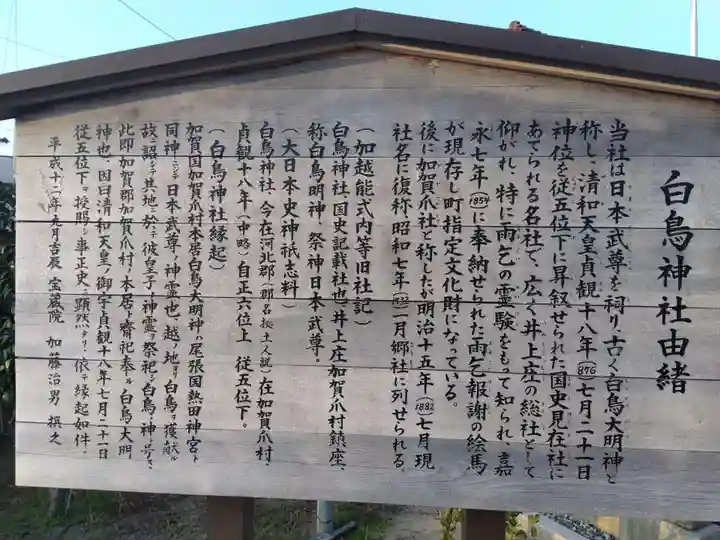 白鳥神社由緒
当社は日本武尊を祠り、古く白鳥大明神と
称し、清和天皇貞観十八年（876）七月二十一日
神位を従五位下に昇叙せられた国史見在社に
あてられる名社で、広く井上庄の総社として
仰がれ、特に雨乞の霊験をもって知られ、嘉
永七年（1854）に奉納せられた雨乞報謝の絵馬
が現存し町指定文化財になっている。
後に加賀爪社と称したが明治十五年（1882）七月現
社名に復称、昭和七年二月郷社に列せられる。
（加越能式内等旧社記）
白鳥神社、国史記載社也、井上庄加賀爪村鎮座、
称白鳥明神、祭神日本武尊。
（大日本史神祇志料）
白鳥神社、今在河北郡（郡名拠土人説）在加賀爪村、
貞観十八年（中略）自正六位上 従五位下。
（白鳥神社縁起）
加賀国加賀爪村本居白鳥大明神ハ尾張国熱田神宮ト
同神ニシテ日本武尊ノ神霊也、越ノ地ヨリ白鳥ヲ獲献ル
故ニ詔シテ其地ニ於テ彼皇子ノ神霊ヲ祭祀シ白鳥神ト号ス、
此即加賀郡加賀爪村ノ本居ト齋祀奉ル白鳥大明
神也、因曰清和天皇ノ御宇貞観十八年七月二十一日
従五位下ヲ授賜シ事正史ニ顕然タリ、依テ縁起如件。
平成十二年九月吉辰 宝蔵院 加藤治男 撰之